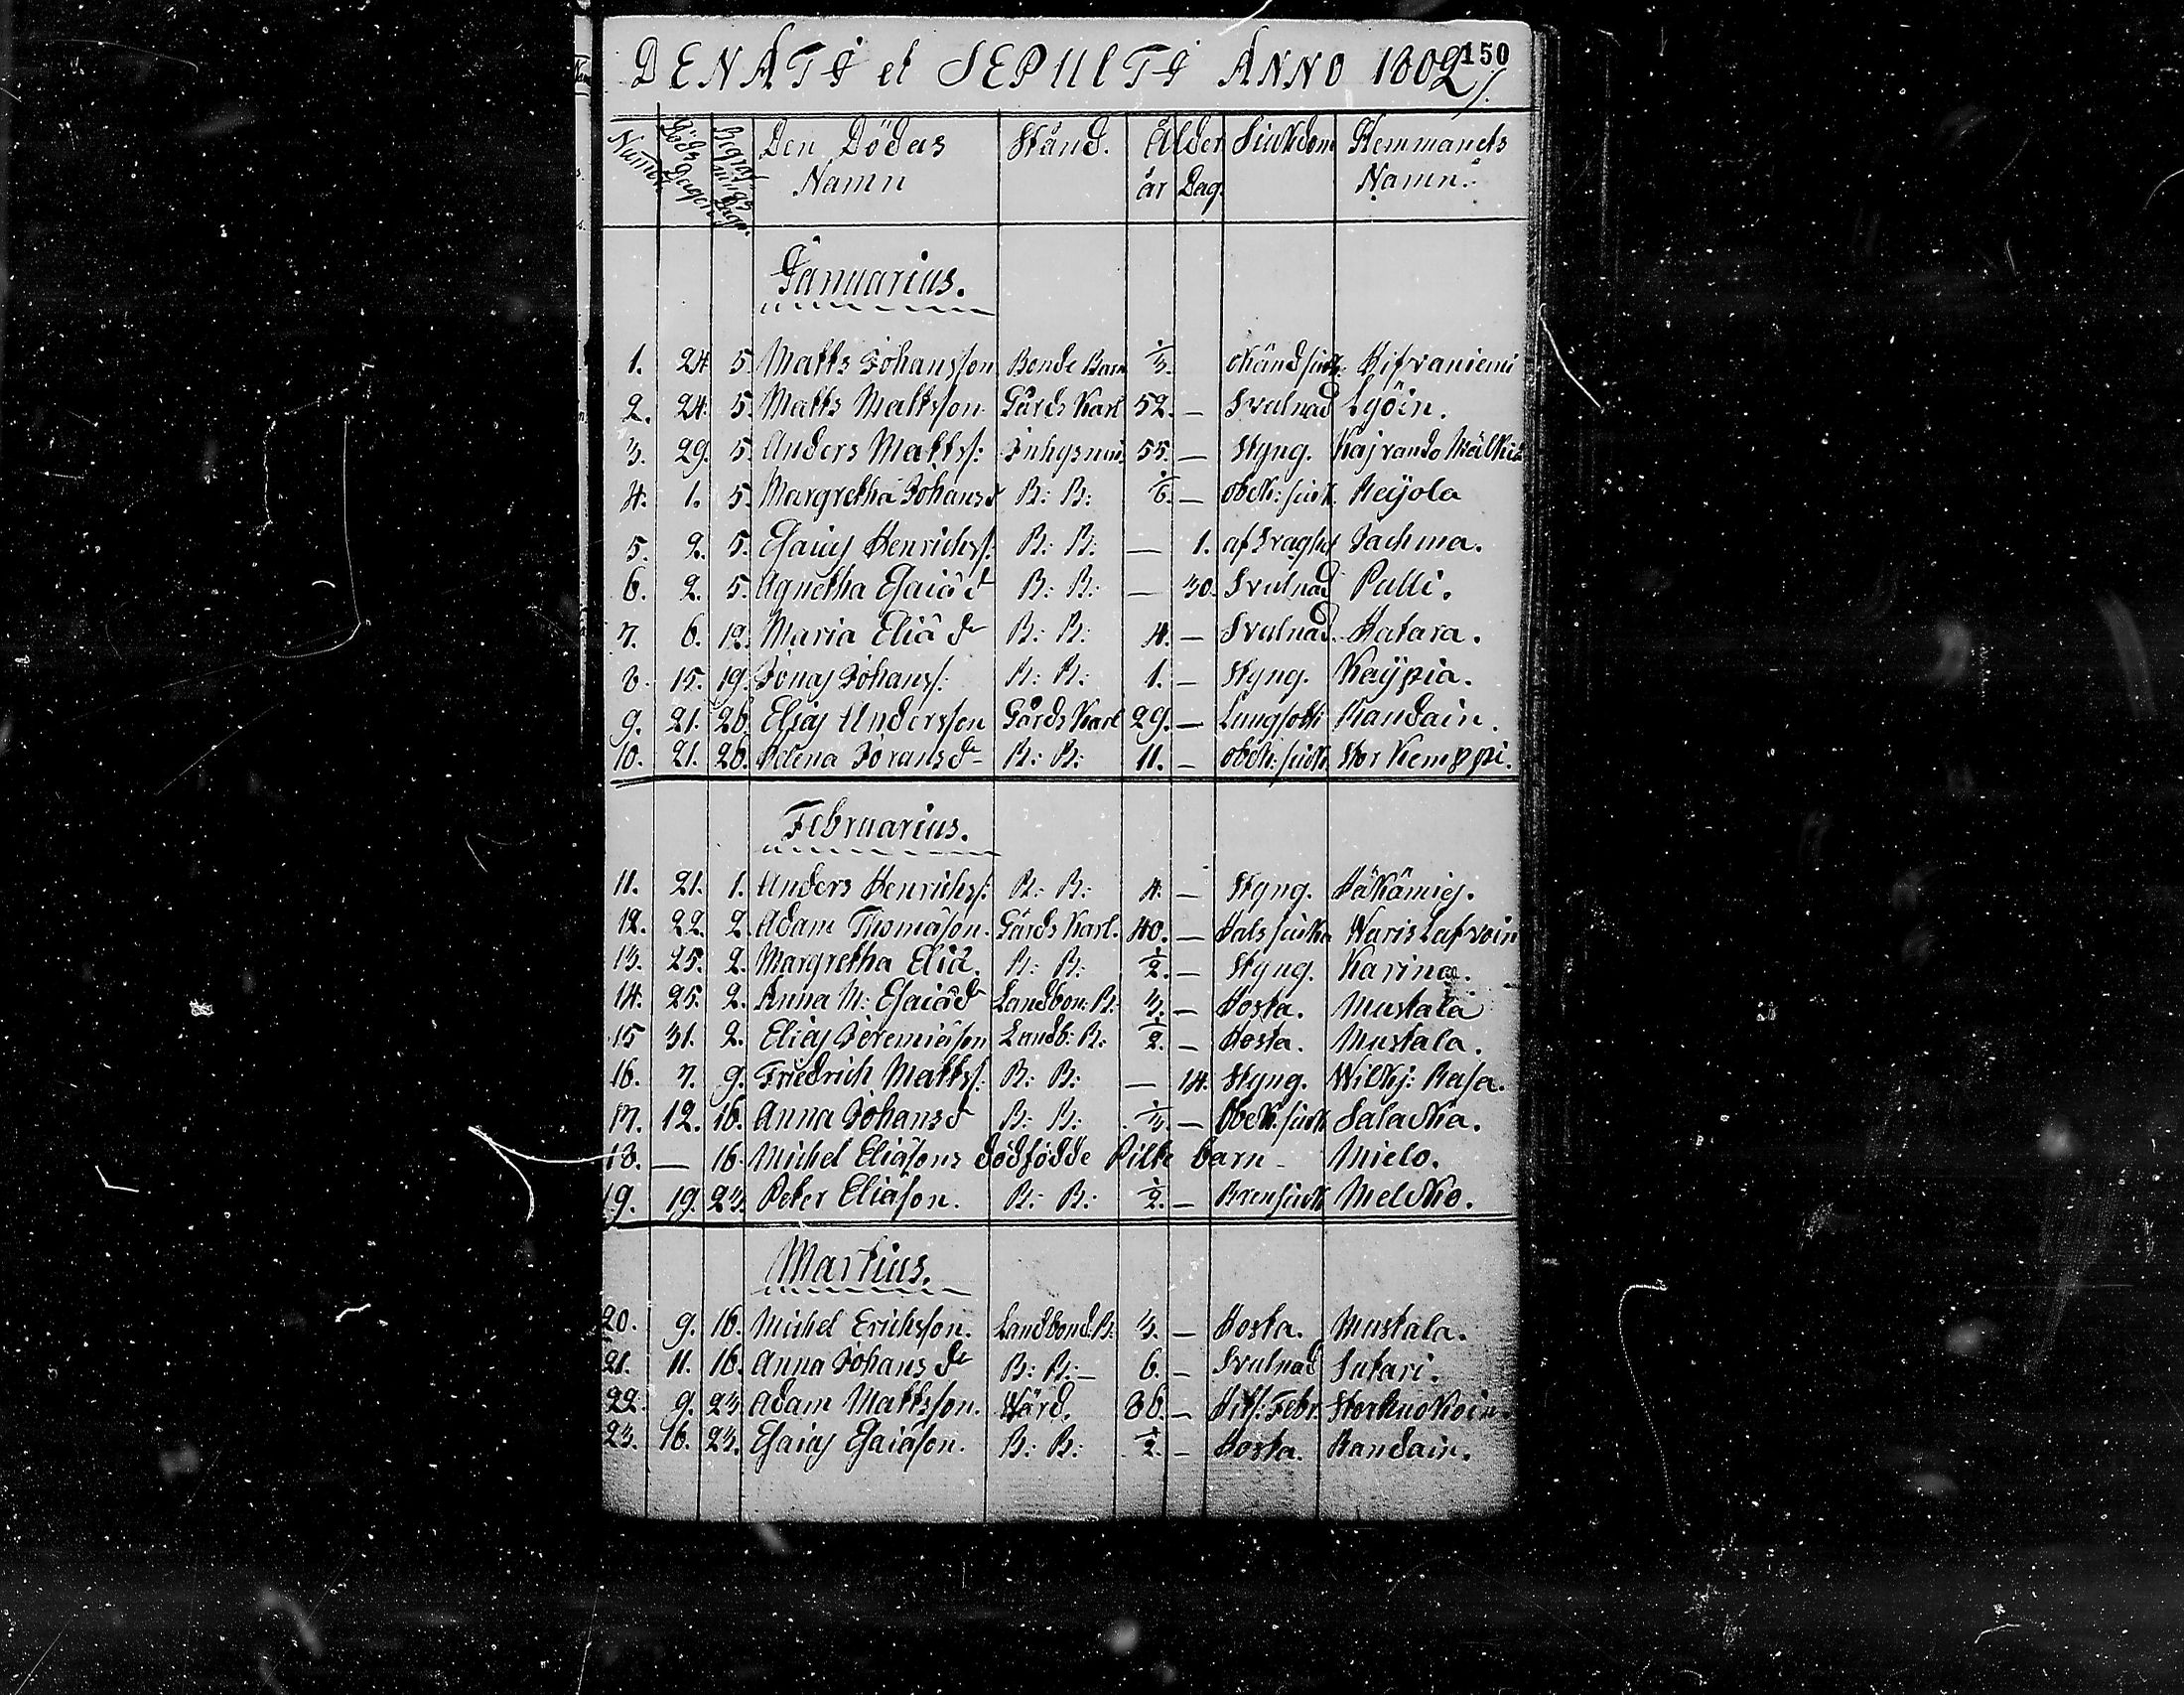 150
DENATI et SEPULTI ANNO 1802/.
Numer Döds Dagen Begrafnings Dag. Den Dödas Namn Stånd. Ålder år Dag. Siukdom Hemmanets Namn.
Januarius.
1. 24 5. Matts Johansson Bonde Barn 1/3. okänd siuk: Hifvaniemi
2. 24. 5. Matts Mattsson Gårds Karl 52. — Svulnad Lyöin.
3. 29. 5. Anders Matts: Inhysm: 55. — Styng. Kajrando
4. 1. 5. Margretha Johansd B: B: 1/6. — obek: siuk. Reijola
5. 2. 5. Esaias Henrichs: B: B: — 1. Jachma.
6. 2. 5. Agnetha Esaiæ dr B: B: — 30. Svulnad Palli.
7. 6. 12. Maria Eliæ dr B: B: 4. — Svulnad. Hatara.
8. 15. 19. Jonas Johans: B: B: 1. — Styng. Kaijpia.
9. 21. 26. Elias Andersson Gårds Karl 29. — Lungsoht Randain.
10. 21. 26. Helena Joransdr B: B: 11. — obek: siuk Stor Kemppi.
Februarius.
11. 21. 1. Anders Henrichs: B: B: 4. — Styng. Häkämies.
12. 22. 2. Adam Thomæson. Gårds Karl. 40. — Hals siuka Waris Lafvoin
13. 25. 2. Margretha Eliæ. B: B: 1/2. — Styng. Karina.
14. 25. 2. Anna M: Esaiæd Landbon: B: 3. — Hosta. Mustala
15 31. 2. Elias Jeremiæson Landb: B: 1/2. — Hosta. Mustala.
16. 7. 9. Friedrich Matts: B: B: — 14. Styng. Wilkj: Rasa.
17. 12. 16. Anna Johansd B: B: 1/3. — Obek: siuk Salackа.
18. — 16. Michel Eliæsons dödfödde Pilte barn — Mielo.
19. 19. 23. Peter Eliæson. B: B: 1/2. — Melcko.
Martius.
20. 9. 16. Michel Erichsson. Landbond: B: 3. — Hosta. Mustala.
21. 11. 16. Anna Johansdr B: B: — 6. — Svulnad Sutari.
22. 9. 23 Adam Mattsson. Värd. 36. — Hits: Febr.
23. 16. 23. Esaias Esaiæson. B: B: 1/2. — Hosta. Randain.